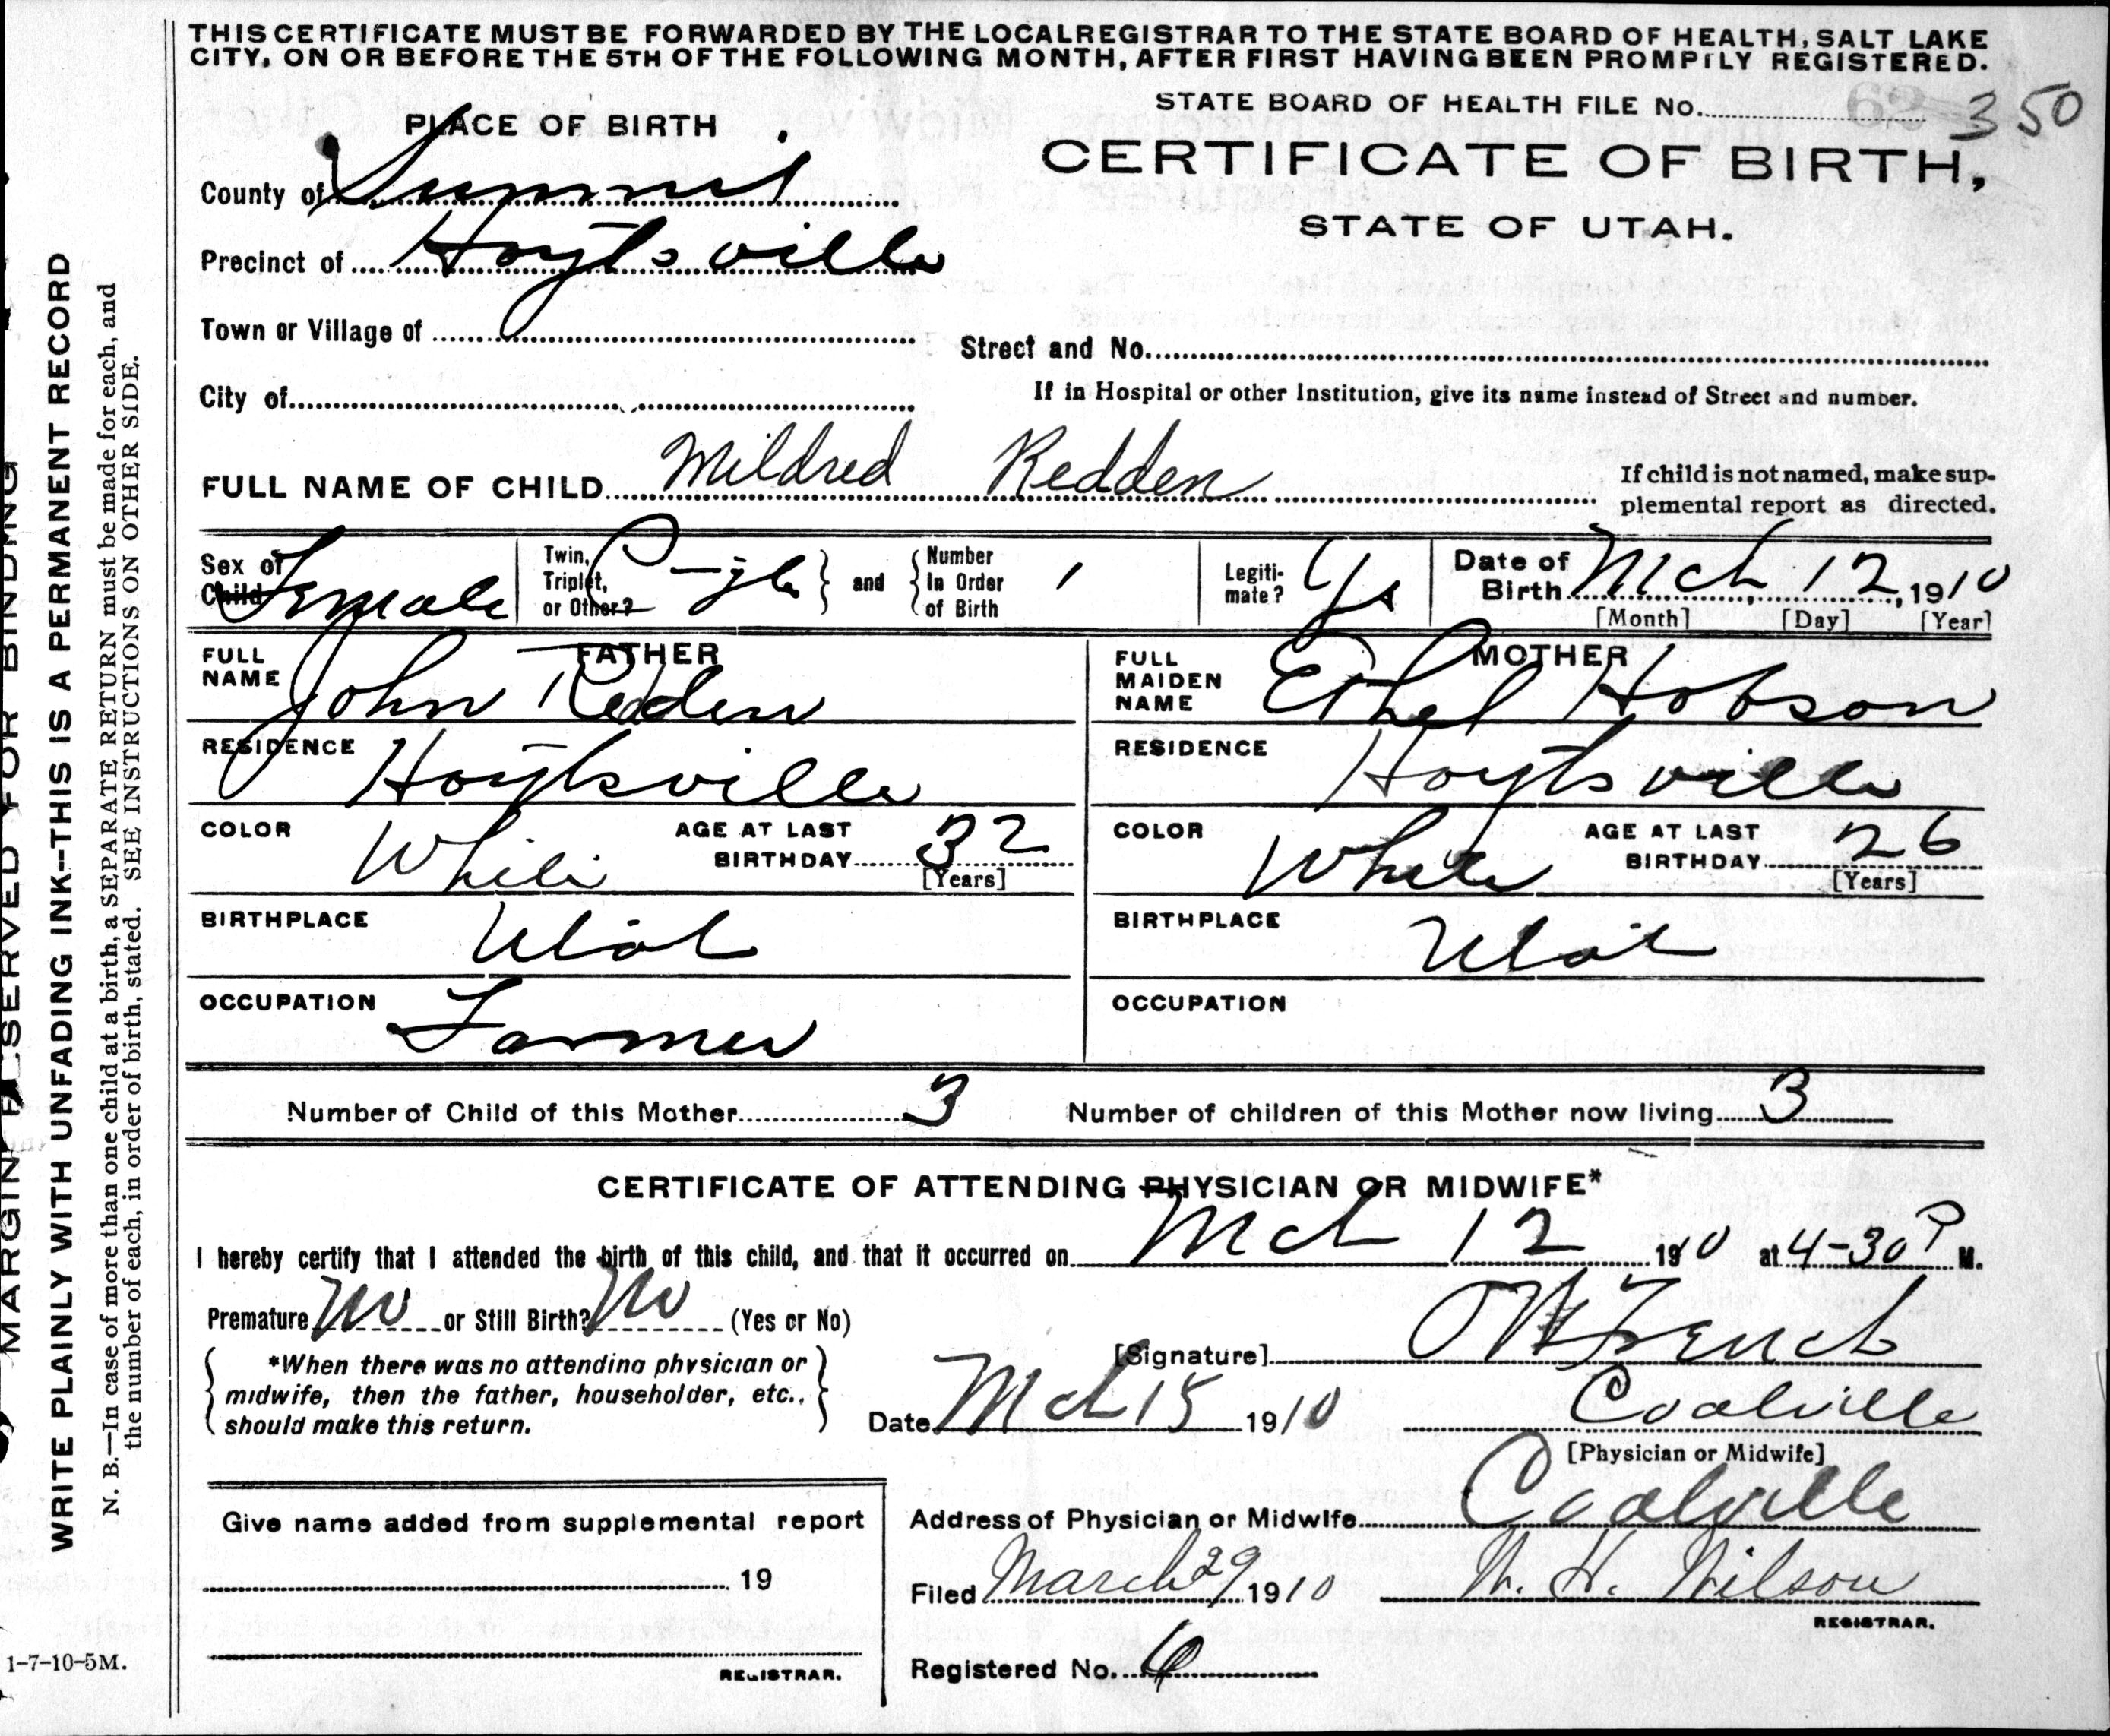 THIS CERTIFICATE MUST BE FORWARDED BY THE LOCAL REGISTRAR TO THE STATE BOARD OF HEALTH, SALT LAKE
CITY, ON OR BEFORE THE 5TH OF THE FOLLOWING MONTH, AFTER FIRST HAVING BEEN PROMPTLY REGISTERED.
STATE BOARD OF HEALTH FILE No. 350
PLACE OF BIRTH
CERTIFICATE OF BIRTH,
STATE OF UTAH.
County of Summit
Precinct of Hoytsville
Town or Village of
Street and No.
City of
If in Hospital or other Institution, give its name instead of Street and number.
FULL NAME OF CHILD Mildred Redden
If child is not named, make sup-
plemental report as directed.
Sex of Child Female
Twin, Triplet, or Other? Single and Number In Order of Birth 1
Legiti-mate? Yes
Date of Birth Mch 12, 1910
[Month] [Day] [Year]
FATHER
FULL NAME John Redden
RESIDENCE Hoytsville
COLOR White AGE AT LAST BIRTHDAY 32
[Years]
BIRTHPLACE Utah
OCCUPATION Farmer
MOTHER
FULL MAIDEN NAME Ethel Hobson
RESIDENCE Hoytsville
COLOR White AGE AT LAST BIRTHDAY 26
[Years]
BIRTHPLACE Utah
OCCUPATION
Number of Child of this Mother 3 Number of children of this Mother now living 3
CERTIFICATE OF ATTENDING PHYSICIAN OR MIDWIFE*
I hereby certify that I attended the birth of this child, and that it occurred on Mch 12 1910 at 4-30 P M.
Premature No or Still Birth? No (Yes or No)
*When there was no attending physician or
midwife, then the father, householder, etc.,
should make this return.
[Signature] French
Date Mch 15 1910 Coalville
[Physician or Midwife]
Give name added from supplemental report
19
REGISTRAR.
Address of Physician or Midwife Coalville
Filed March 29 1910 W. H. Wilson
REGISTRAR.
Registered No. 6
MARGIN RESERVED FOR BINDING
WRITE PLAINLY WITH UNFADING INK--THIS IS A PERMANENT RECORD
N. B.—In case of more than one child at a birth, a SEPARATE RETURN must be made for each, and
the number of each, in order of birth, stated. SEE INSTRUCTIONS ON OTHER SIDE.
1-7-10-5M.